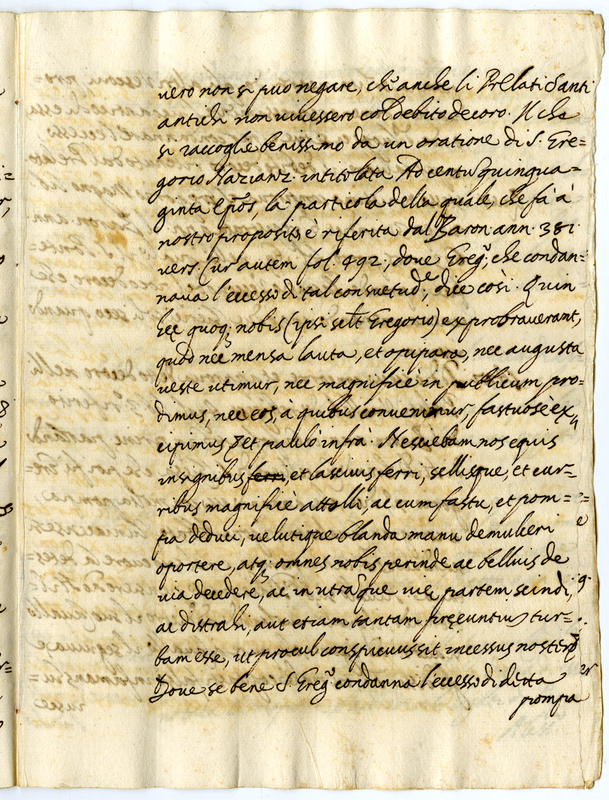 vero non si puo negare, che anche li Prelati Santi
antichi non vivessero col debito decoro. Il che
si raccoglie benissimo da un oratione di S. Gre=
gorio Nazianz. intitolata Ad centũ quinqua=
ginta Epõs, la particola della quale, che fà à
nostro proposito, è riferita dal Baron. ann. 381.
vers. Cur autem fol. 492, dove Greg.º, che condan=
nava l'eccesso di tal consuetud.e, dice così. Quin
hęc quoq; nobis (ipsi sclt Gregorio) exprobraverant,
quod nec mensa lauta, et opipara, nec augusta
veste utimur, nec magnificè in publicum pro=
dimus, nec eos, à quibus convenimur, fastuosè ex
cipimus et paulò infrà. Nesciebam nos equis
insignibus ferri, et lascivis ferri, sellisque, et cur=
ribus magnificè attolli, ac cum fastu, et pom=
pa deduci, velutique blanda manu demulceri
oportere, atq; omnes nobis perinde ac belluis de
via decedere, ac in utraque vię partem scindi,
ac distrahi, aut etiam tantam pręeuntiũ tur=
bam esse, ut procul conspicuus sit incessus noster
Dove se bene S. Greg.º condanna l'eccesso di detta
pompa